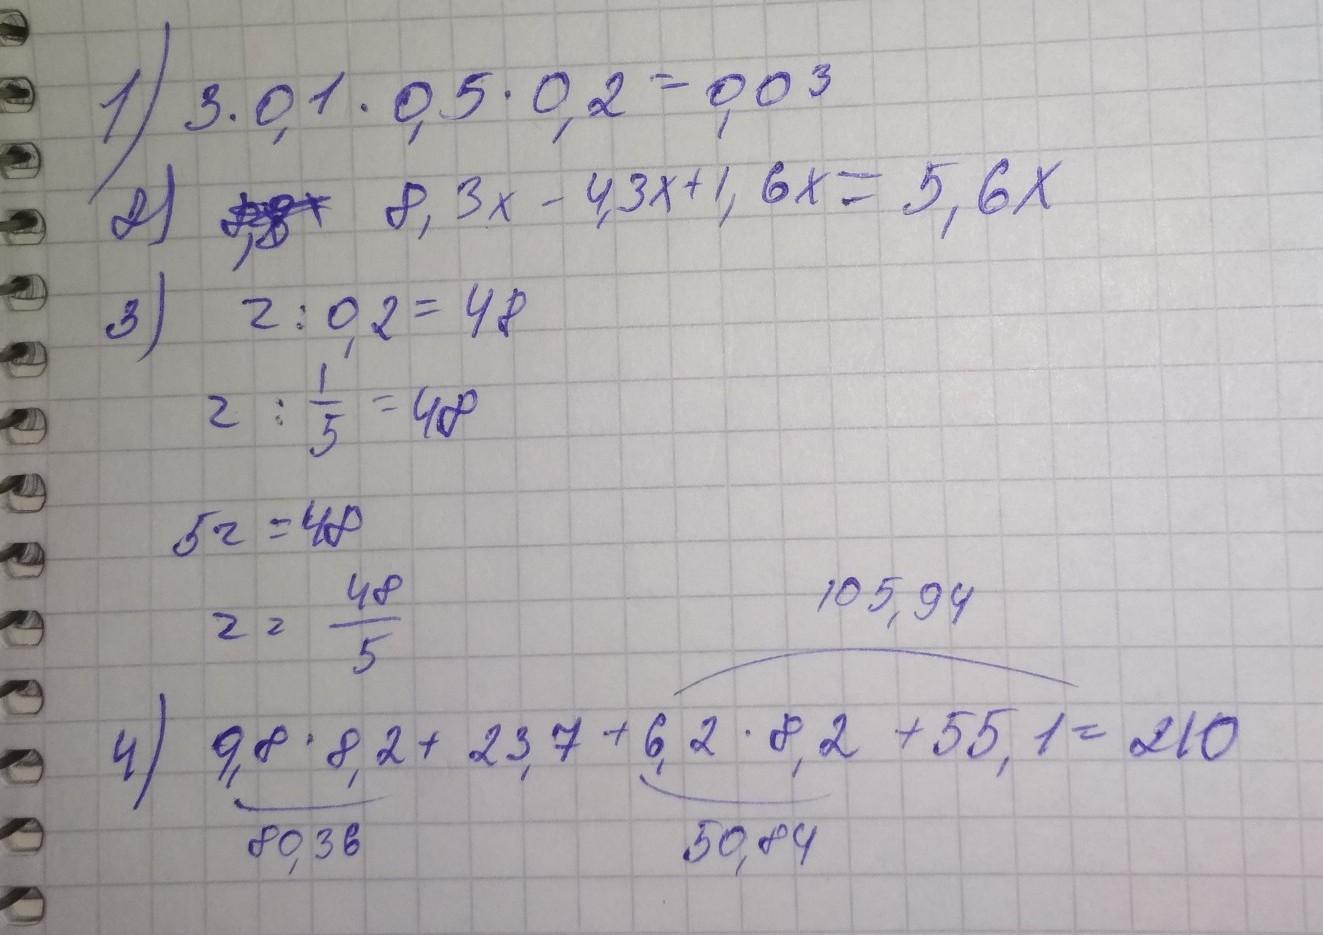 1) 3 · 0,1 · 0,5 · 0,2 = 0,03
2) 8,3x - 4,3x + 1,6x = 5,6x
3) z : 0,2 = 48
z : 1/5 = 48
5z = 48
z = 48/5
105,94
4) 9,8 · 8,2 + 23,7 + 6,2 · 8,2 + 55,1 = 210
80,36 50,84